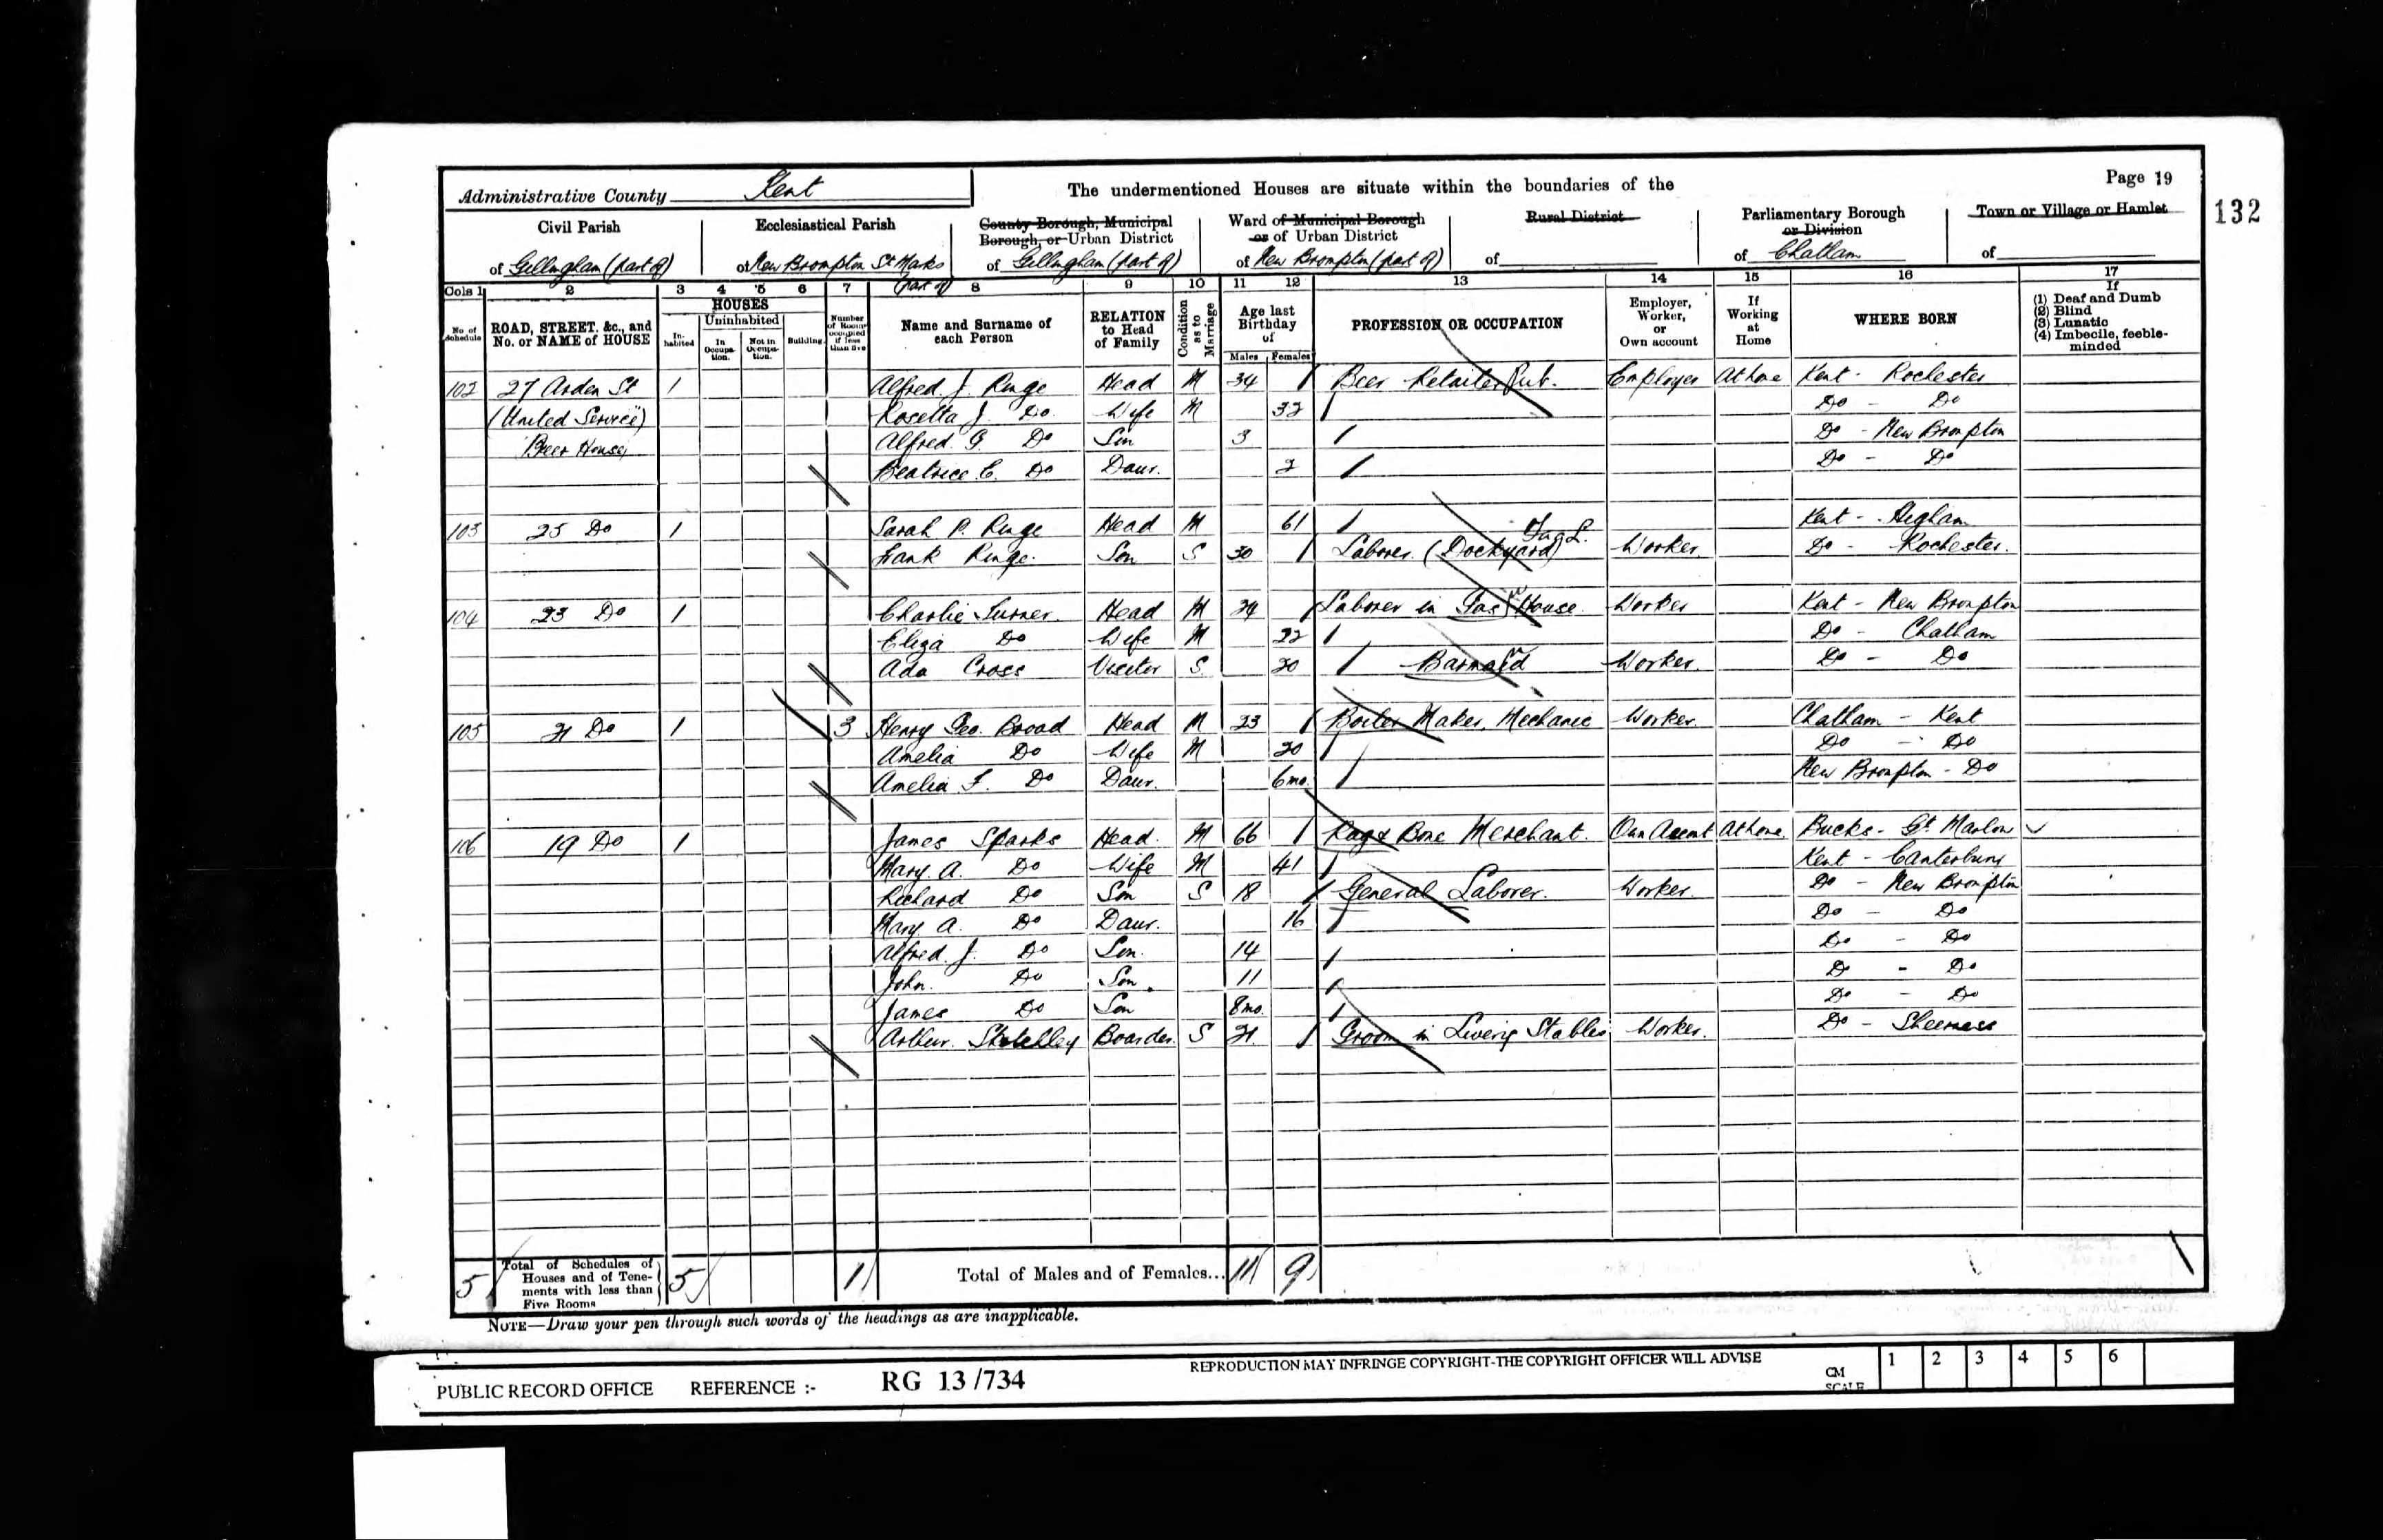 Page 19
132
Administrative County Kent
The undermentioned Houses are situate within the boundaries of the
Civil Parish
of Gillingham (part of)
Ecclesiastical Parish
of New Brompton St Marks
(part of)
County Borough, Municipal
Borough, or Urban District
of Gillingham (part of)
Ward of Municipal Borough
or of Urban District
of New Brompton (part of)
Rural District
of
Parliamentary Borough
or Division
of Chatham
Town or Village or Hamlet
of
Cols 1 2 3 4 5 6 7 8 9 10 11 12 13 14 15 16 17
No of Schedule
ROAD, STREET, &c., and No. or NAME of HOUSE
HOUSES
Inhabited
Uninhabited
In Occupation.
Not in Occupation.
Building.
Number of Rooms occupied if less than five
Name and Surname of each Person
RELATION to Head of Family
Condition as to Marriage
Age last Birthday of
Males Females
PROFESSION OR OCCUPATION
Employer, Worker, or Own account
If Working at Home
WHERE BORN
If
(1) Deaf and Dumb
(2) Blind
(3) Lunatic
(4) Imbecile, feeble-minded
102 27 Arden St 1 Alfred J. Ringe Head M 34 Beer Retailer Pub. Employer At home Kent - Rochester
(United Service) Rosetta J Do Wife M 32 Do - Do
Beer House Alfred G. Do Son 3 Do - New Brompton
Beatrice C. Do Daur. 2 Do - Do
103 25 Do 1 Sarah P. Ringe Head M 61 Kent - Higham
Frank Ringe Son S 30 Laborer (Dockyard) Worker Do - Rochester.
104 23 Do 1 Charlie Turner Head M 24 Laborer in Gas House Worker Kent - New Brompton
Eliza Do Wife M 22 Do - Chatham
Ada Cross Visitor S 20 Barmaid Worker. Do - Do
105 21 Do 1 3 Henry Geo. Broad Head M 23 Boiler Maker, Mechanic Worker Chatham - Kent
Amelia Do Wife M 20 Do - Do
Amelia F. Do Daur. 6mo. New Brompton - Do
106 19 Do 1 James Sparks Head M 66 Rag & Bone Merchant. Own Acount At home Bucks - Gt Marlow
Mary A. Do Wife M 41 Kent - Canterbury
Richard Do Son S 18 General Laborer. Worker. Do - New Brompton
Mary A. Do Daur. 16 Do - Do
Alfred J. Do Son. 14 Do - Do
John. Do Son. 11 Do - Do
James Do Son 8mo. Do - Do
Arthur Boarder. S 21 Groom in Livery Stables Worker. Do - Sheerness
5 Total of Schedules of Houses and of Tenements with less than Five Rooms 5 1 Total of Males and of Females... 11 9
NOTE—Draw your pen through such words of the headings as are inapplicable.
PUBLIC RECORD OFFICE REFERENCE :- RG 13/734
REPRODUCTION MAY INFRINGE COPYRIGHT-THE COPYRIGHT OFFICER WILL ADVISE
CM SCALE 1 2 3 4 5 6